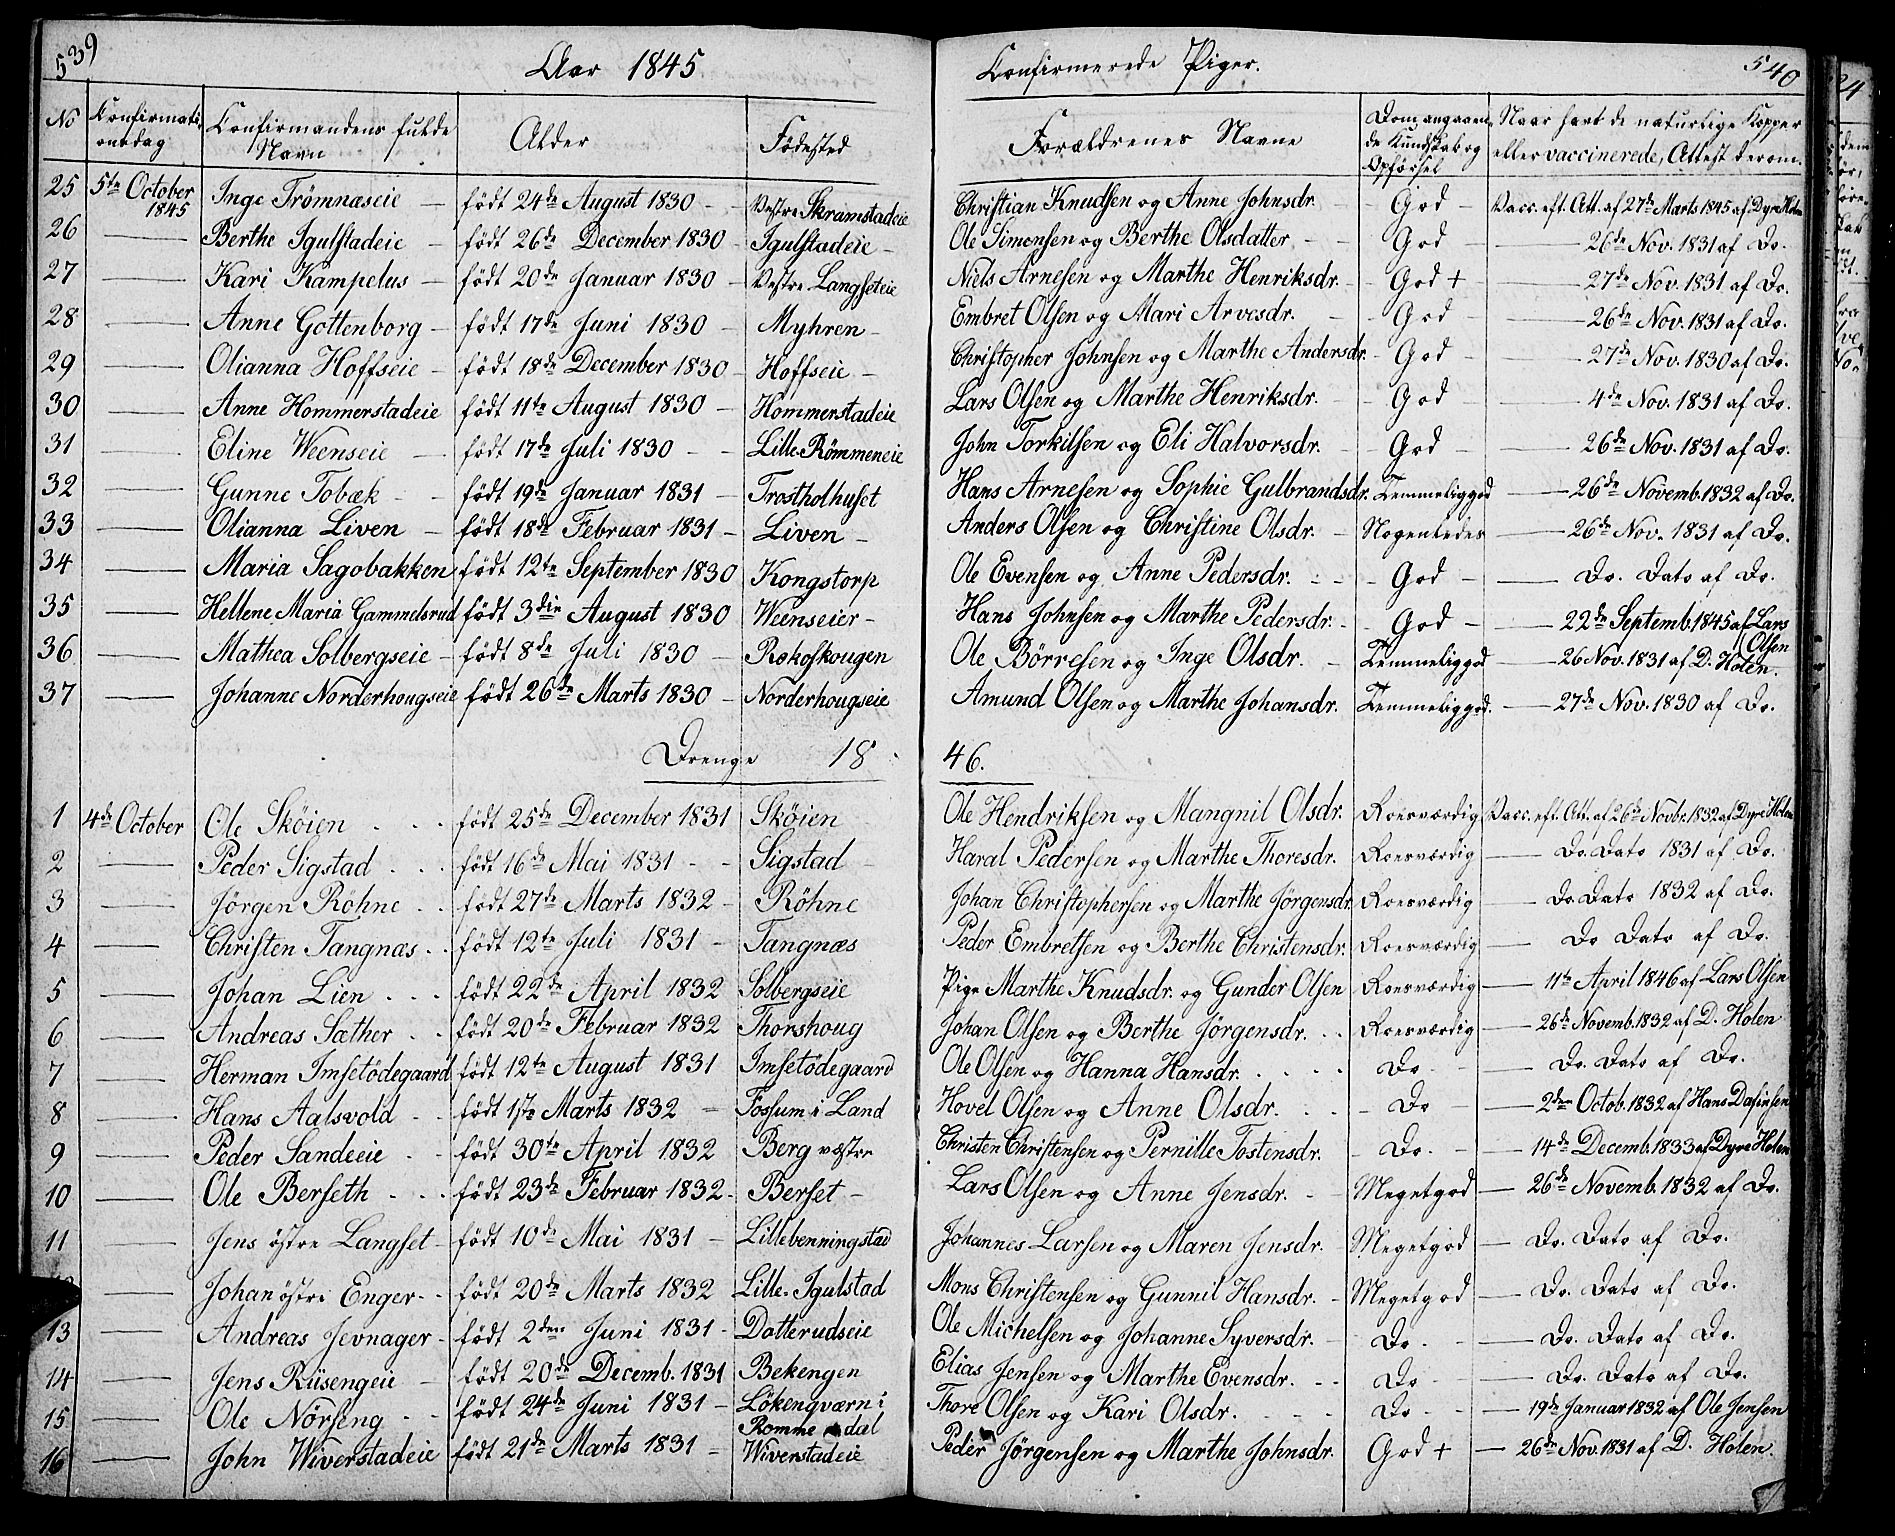 539
Aar 1845
Confirmerede Piger.
540
No Confirmati- onsdag Confirmandens fulde Navn Alder Födested Forældrenes Navne Dom angaaen- de Kundskab og Opförsel Naar havt de naturlige Kopper eller vaccinerede, Attest derom.
25 5te October 1845 Inge Trömnæseie — födt 24de August 1830 — Vestre Skramstadeie Christian Knudsen og Anne Johnsdr. God — Vacc. eft. Att. af 27de Marts 1845 af Dyre Holen
26 — Berthe Igulstadeie — födt 26de December 1830 — Igulstadeie — Ole Simensen og Berthe Olsdatter — God — 26de Nov. 1831 af Do.
27 — Kari Kampelus — födt 20de Januar 1830 — Vestre Langseteie Niels Arnesen og Marthe Henriksdr. — God + — 27de Nov. 1831 af Do.
28 — Anne Gottenborg — födt 17de Juni 1830 — Myhren — Embret Olsen og Mari Arvesdr. — God — 26de Nov. 1831 af Do.
29 — Olianna Hoffseie — födt 18de December 1830 — Hoffseie — Christopher Johnsen og Marthe Andersdr. — God — 27de Nov. 1830 af Do.
30 — Anne Hommerstadeie födt 11te August 1830 — Hommerstadeie Lars Olsen og Marthe Henriksdr. — God — 4de Nov. 1831 af Do.
31 — Eline Weenseie — födt 17de Juli 1830 — Lille Römmeneie John Torkilsen og Eli Halvorsdr. — God — 26de Nov. 1831 af Do.
32 — Gunne Tobæk — födt 19de Januar 1831 — Trostholhuset Hans Arnesen og Sophie Gulbrandsdr. Temmelig god — 26de Novemb. 1832 af Do.
33 — Olianna Liven — födt 18de Februar 1831 — Liven — Anders Olsen og Christine Olsdr. — Nogenledes — 26de Nov. 1831 af Do.
34 — Maria Sagobakken födt 12te September 1830 Kongstorp Ole Evensen og Anne Pedersdr. — God — Do. Dato af Do.
35 — Hellene Maria Gammelsrud födt 3die August 1830 Weenseier — Hans Johnsen og Marthe Pedersdr. — God — 22de Septemb. 1845 af Lars Olsen
36 — Mathea Solbergseie — födt 8de Juli 1830 — Prækoskougen Ole Börresen og Inge Olsdr. — Temmelig god — 26 Nov. 1831 af D. Holen.
37 — Johanne Norderhougseie födt 26te Marts 1830 — Norderhougseie Amund Olsen og Marthe Johansdr. Temmelig god. — 27de Nov. 1830 af Do.
Drenge 18 46.
1 4de October Ole Sköien födt 25de December 1831 Sköien Ole Hendriksen og Mangnil Olsdr. Roesværdig Vacc. eft. Att. af 26de Novbr. 1832 af Dyre Holen
2 — Peder Sigstad födt 16de Mai 1831 — Sigstad Haral Pedersen og Marthe Thoresdr. Roesværdig — Do. Dato 1831 af Do.
3 — Jörgen Röhne födt 27de Marts 1832 — Röhne Johan Christophersen og Marthe Jörgensdr. Roesværdig — Do Dato 1832 af Do.
4 — Christen Tangnæs födt 12te Juli 1831 — Tangnæs Peder Embretsen og Berthe Christensdr. Roesværdig — Do Dato af Do.
5 — Johan Lien födt 22de April 1832 Solbergseie Pige Marthe Knudsdr. og Gunder Olsen Roesværdig — 11te April 1846 af Lars Olsen
6 — Andreas Sæther födt 20de Februar 1832 Thorshoug Johan Olsen og Berthe Jörgensdr. Roesværdig — 26de Novemb. 1832 af D. Holen
7 — Herman Imsetödegaard födt 12te August 1831 Imsetödegaard Ole Olsen og Hanna Hansdr. Do — Do. Dato af Do.
8 — Hans Aalsvold födt 1ste Marts 1832 — Fossum i Land Hovel Olsen og Anne Olsdr. — Do — 2den Octob. 1832 af Hans Dafinsen
9 — Peder Sandeeie födt 30te April 1832 Berg vestre Christen Christensen og Pernille Tostensdr. — Do. — 14de Decemb. 1833 af Dyre Holen
10 — Ole Berseth födt 23de Februar 1832. Berset — Lars Olsen og Anne Jensdr. — Meget god — 26de Novemb. 1832 af Do.
11 — Jens östre Langset — födt 10de Mai 1831 — Lillebenningstad Johannes Larsen og Maren Jensdr. — Meget god — Do. Dato af Do.
— Johan östre Enger födt 20de Marts 1832 Lille Igulstad Mons Christensen og Gunnil Hansdr. — Meget god — Do. Dato af Do.
13 — Andreas Jevnager — födt 2den Juni 1831 — Dotterudseie Ole Michelsen og Johanne Syversdr. — Do. — Do. Dato af Do.
14 — Jens Rüsengeie — födt 20de Decemb. 1831 Bekengen Elias Jensen og Marthe Evensdr. Do — Do. Dato af Do.
15 — Ole Nörseng födt 24de Juni 1831 — Lökenqværn i Romme dal Thore Olsen og Kari Olsdr. Do — 19de Januar 1832 af Ole Jensen
16 — John Wiverstadeie födt 21de Marts 1831 — Wiverstadeie Peder Jörgensen og Marthe Johnsdr. God + — 26de Nov. 1831 af D. Holen.